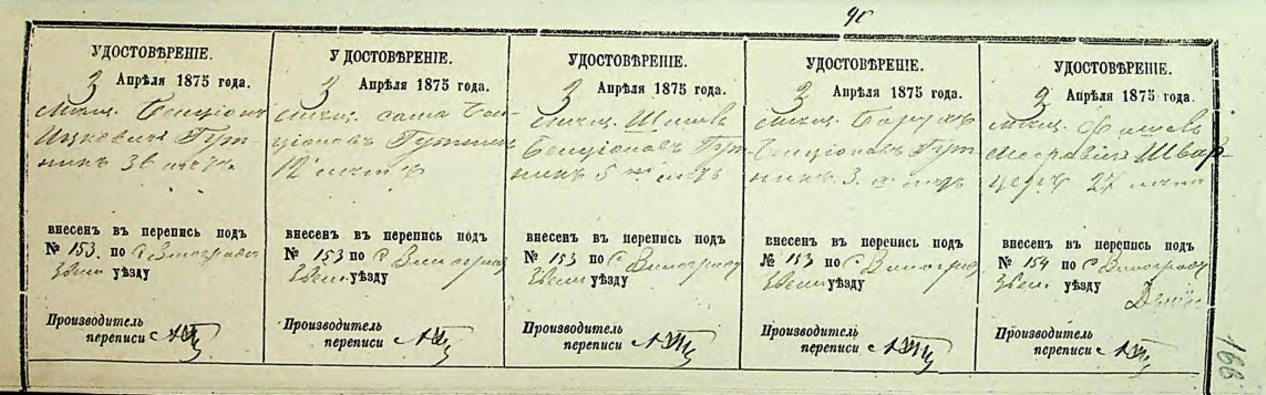 90
УДОСТОВѢРЕНІЕ.
3 Апрѣля 1875 года.
мѣщ. Бенціонъ
Ицковичъ Гут-
никъ 36 лѣтъ
внесенъ въ перепись подъ
№ 153. по с Виноградов
Звен уѣзду
Производитель
переписи
УДОСТОВѢРЕНІЕ.
3 Апрѣля 1875 года.
мѣщ. сына Бен-
ціоновъ Гутникъ
12 лѣтъ
внесенъ въ перепись подъ
№ 153 по с Виноград
Звен уѣзду
Производитель
переписи
УДОСТОВѢРЕНІЕ.
3 Апрѣля 1875 года.
мѣщ.
Бенціоновъ Гут-
никъ 5 лѣтъ
внесенъ въ перепись подъ
№ 153 по с Виноград
Звен уѣзду
Производитель
переписи
УДОСТОВѢРЕНІЕ.
3 Апрѣля 1875 года.
мѣщ. Борухъ
Бенціоновъ Гут-
никъ 3. лѣтъ
внесенъ въ перепись подъ
№ 153 по с Виноград
Звен уѣзду
Производитель
переписи
УДОСТОВѢРЕНІЕ.
3 Апрѣля 1875 года.
мѣщ.
Швар-
церъ 27 лѣтъ
внесенъ въ перепись подъ
№ 154 по с Виноград
Звен. уѣзду
Производитель
переписи
166